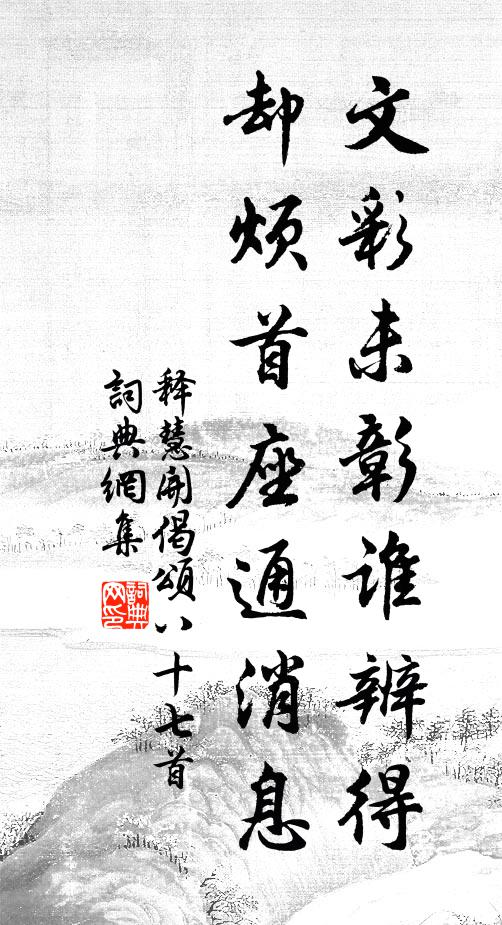 文彩未彰誰辨得
却煩首座通消息
釋慧開偈頌八十七首
詞典網集
詞典网印